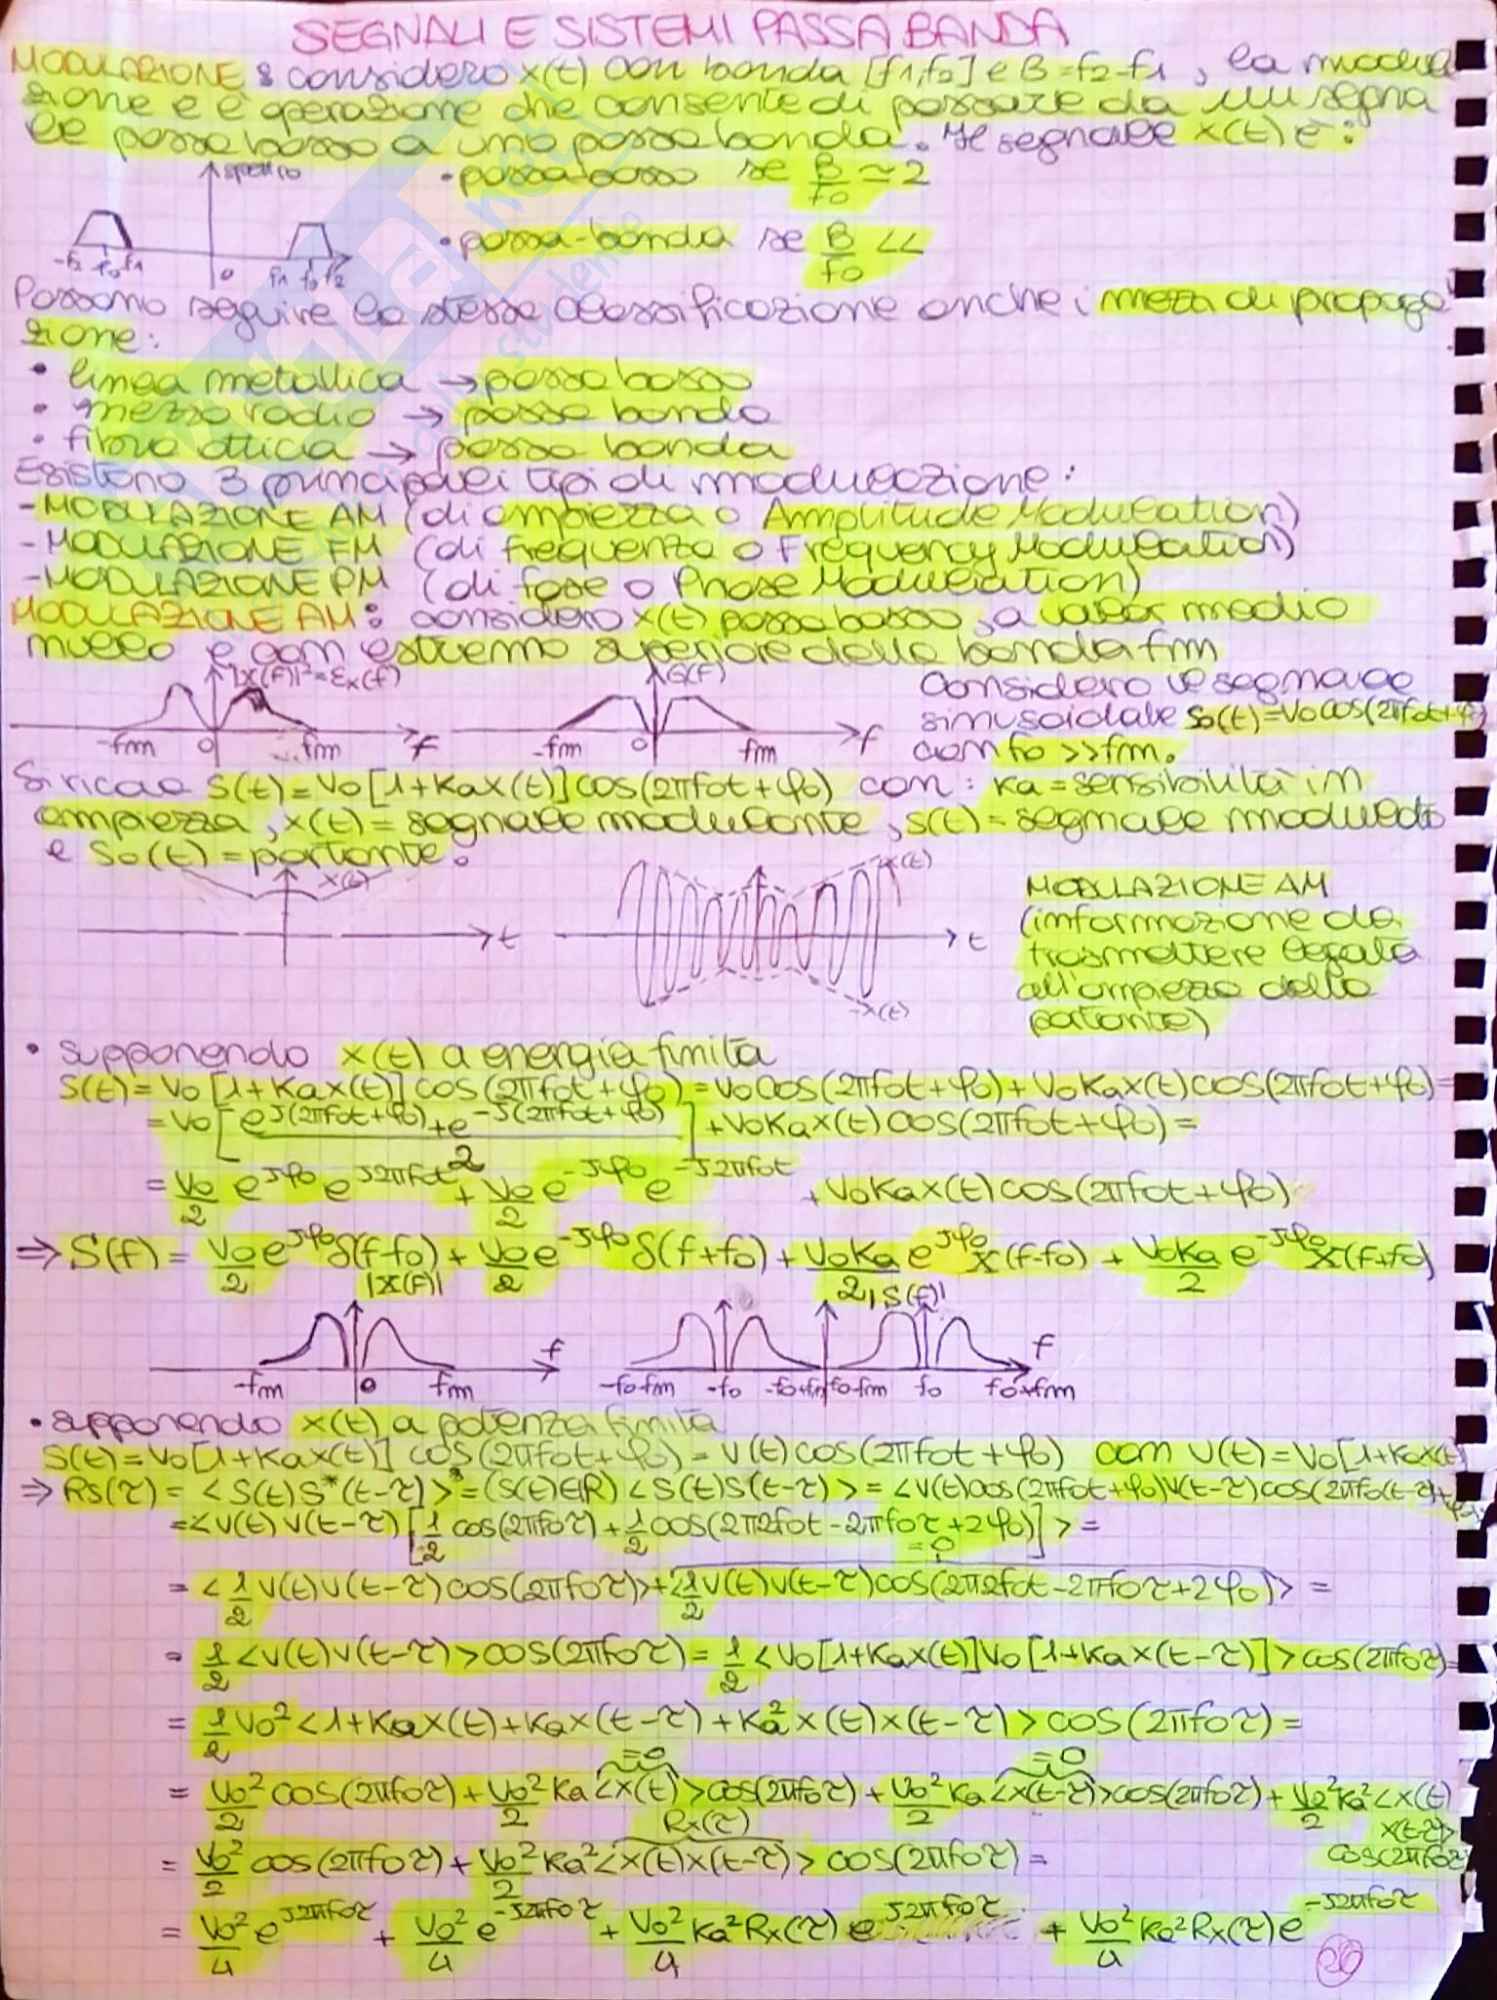 SEGNALI E SISTEMI PASSA BANDA
MODULAZIONE: considero x(t) con banda [f1,f2] e B=f2-f1, la modula
zione e è operazione che consente di passare da un segna
le passa basso a uno passa banda. Il segnale x(t) è:
spettro
• passa-basso se B/f0 ≃ 2
• passa-banda se B/f0 <<
-f2 f0 -f1 0 f1 f0 f2
Possono seguire la stessa classificazione anche i mezzi di propaga
zione:
• linea metallica → passa basso
• mezzo radio → passa banda
• fibra ottica → passa banda
Esistono 3 principali tipi di modulazione:
- MODULAZIONE AM (di ampiezza o Amplitude Modulation)
- MODULAZIONE FM (di frequenza o Frequency Modulation)
- MODULAZIONE PM (di fase o Phase Modulation)
MODULAZIONE AM: considero x(t) passa basso, a valor medio
nullo e con estremo superiore della banda fm
|X(f)|²=Ex(f)
G(f)
-fm 0 fm f
-fm 0 fm f
Considero il segnale
sinusoidale S0(t)=V0cos(2πf0t+φ0)
con f0>>fm.
Si ricava S(t)=V0[1+Kax(t)]cos(2πf0t+φ0) con: Ka=sensibilità in
ampiezza, x(t)=segnale modulante, S(t)=segnale modulato
e S0(t)=portante.
x(t)
t
x(t)
t
-x(t)
MODULAZIONE AM
(informazione da
trasmettere legata
all'ampiezza della
patante)
• supponendo x(t) a energia finita
S(t)=V0[1+Kax(t)]cos(2πf0t+φ0)=V0cos(2πf0t+φ0)+V0Kax(t)cos(2πf0t+φ0)=
=V0[(e^J(2πf0t+φ0)+e^-J(2πf0t+φ0))/2]+V0Kax(t)cos(2πf0t+φ0)=
=V0/2 e^Jφ0 e^J2πf0t + V0/2 e^-Jφ0 e^-J2πf0t + V0Kax(t)cos(2πf0t+φ0)
⇒ S(f)= V0/2 e^Jφ0 δ(f-f0) + V0/2 e^-Jφ0 δ(f+f0) + V0Ka/2 e^Jφ0 X(f-f0) + V0Ka/2 e^-Jφ0 X(f+f0)
|X(f)|
|S(f)|
-fm 0 fm f
-f0-fm -f0 -f0+fm f0-fm f0 f0+fm f
• supponendo x(t) a potenza finita
S(t)=V0[1+Kax(t)]cos(2πf0t+φ0)=V(t)cos(2πf0t+φ0) con V(t)=V0[1+Kax(t)]
⇒ Rs(τ)=<S(t)S*(t-τ)>=(S(t)∈R)<S(t)S(t-τ)>=<V(t)cos(2πf0t+φ0)V(t-τ)cos(2πf0(t-τ)+φ0)>
=<V(t)V(t-τ)[1/2 cos(2πf0τ)+1/2 cos(2π2f0t-2πf0τ+2φ0)]>=
=0
=<1/2 V(t)V(t-τ)cos(2πf0τ)>+<1/2 V(t)V(t-τ)cos(2π2f0t-2πf0τ+2φ0)>=
=1/2<V(t)V(t-τ)>cos(2πf0τ)=1/2<V0[1+Kax(t)]V0[1+Kax(t-τ)]>cos(2πf0τ)=
=1/2 V0²<1+Kax(t)+Kax(t-τ)+Ka²x(t)x(t-τ)>cos(2πf0τ)=
=0 =0
=V0²/2 cos(2πf0τ)+V0²/2 Ka<x(t)>cos(2πf0τ)+V0²/2 Ka<x(t-τ)>cos(2πf0τ)+V0²/2 Ka²<x(t)
x(t-τ)>
cos(2πf0τ)
Rx(τ)
=V0²/2 cos(2πf0τ)+V0²/2 Ka²<x(t)x(t-τ)>cos(2πf0τ)=
=V0²/4 e^J2πf0τ + V0²/4 e^-J2πf0τ + V0²/4 Ka²Rx(τ)e^J2πf0τ + V0²/4 Ka²Rx(τ)e^-J2πf0τ